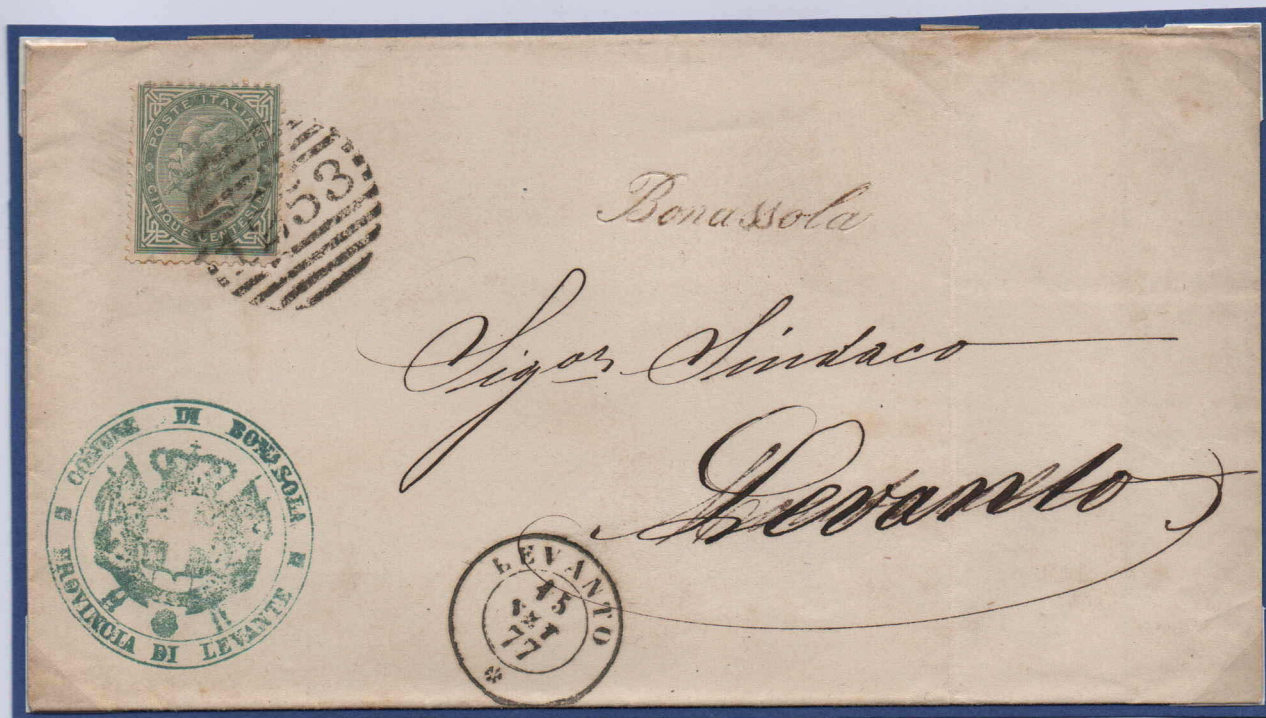 POSTE ITALIANE
CINQUE CENTESIMI
53
Bonassola
Sigor Sindaco
Levanto
COMUNE DI BONASSOLA
PROVINCIA DI LEVANTE
LEVANTO
15
SET
77